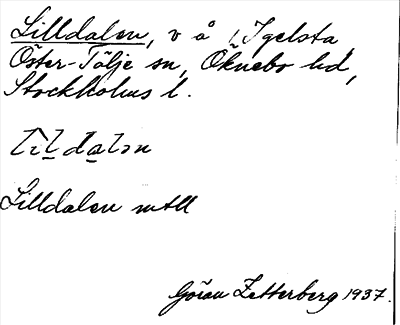 Lilldalen, v å Igelsta,
Öster-Tälje sn, Öknebo hd,
Stockholms l.
Lilldalen mtll
Göran Zetterberg 1937.